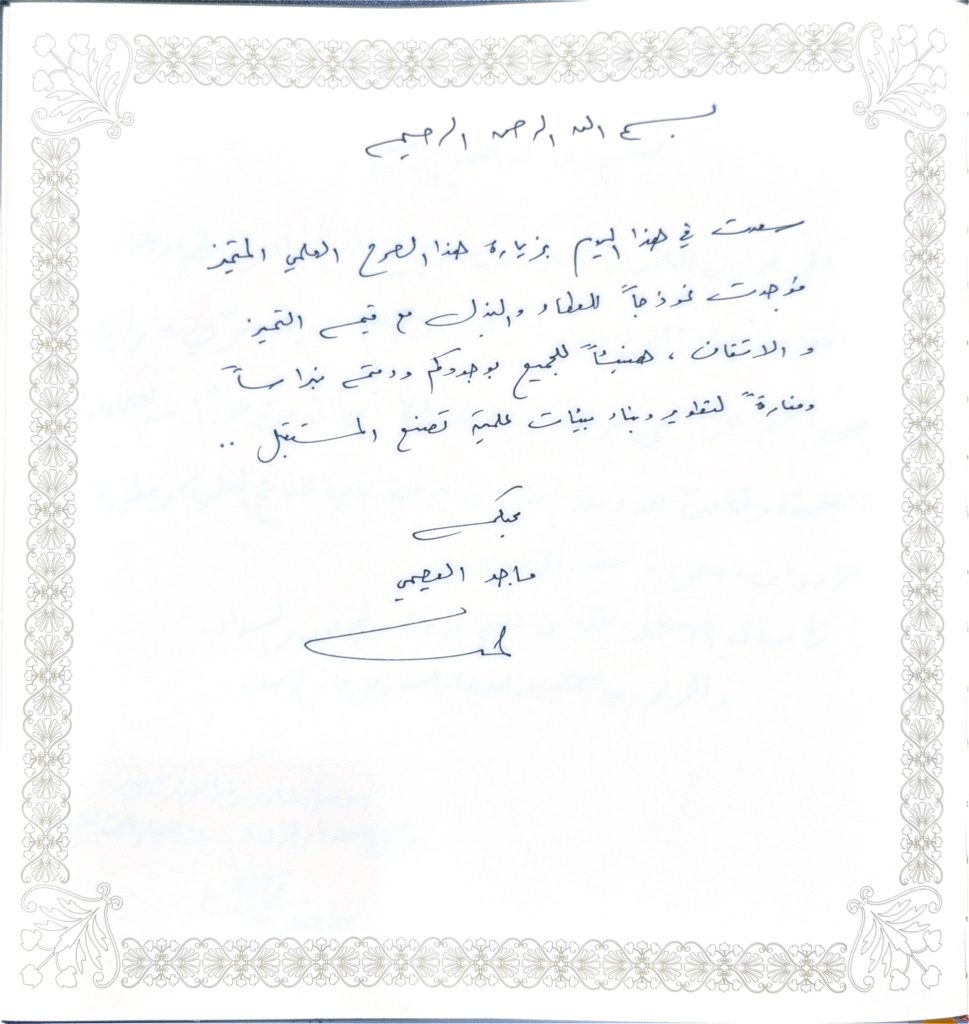 بسم الله الرحمن الرحيم
سعدت في هذا اليوم بزيارة هذا الصرح العلمي المتميز
فوجدت نموذجاً للعطاء والبذل مع قيم التميز
و الاتقان ، هنيئاً للجميع بوجودكم ودمتم نبراساً
ومنارةً لتطوير وبناء بيئات علمية تصنع المستقبل ..
محبكم
ماجد العصيمي